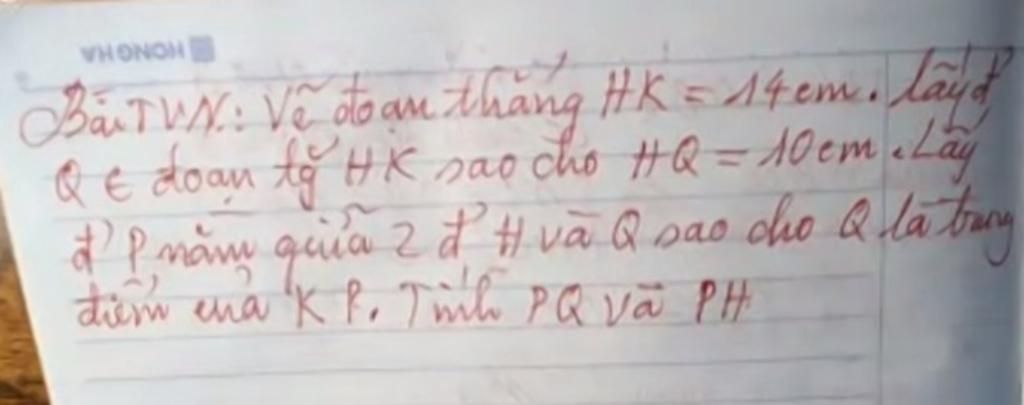 HONG HA
Bài TVN: Vẽ đoạn thẳng HK = 14cm. Lấy đ'
Q ∈ đoạn tg HK sao cho HQ = 10cm. Lấy
đ' P nằm giữa 2 đ' H và Q sao cho Q là trung
điểm của KP. Tính PQ và PH